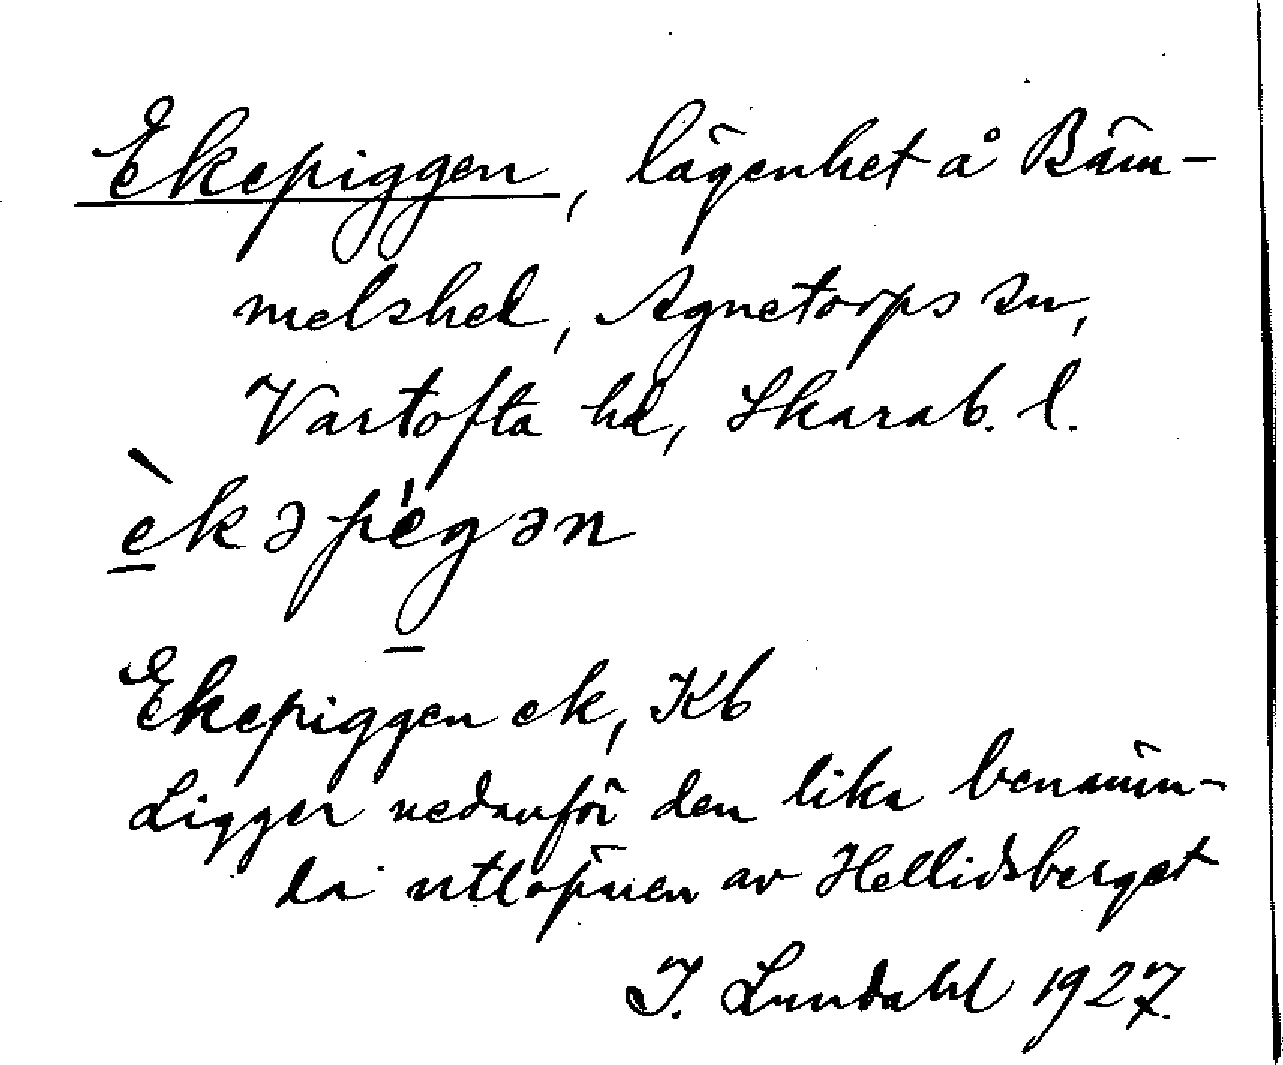 Ekepiggen, lägenhet å Bäm-
melshed, Agnetorps sn,
Vartofta hd, Skarab. l.
èkəpégən
Ekepiggen ek, Kb
Ligger nedanför den lika benämn-
da utlöparen av Hellidsberget
I. Lundahl 1927.